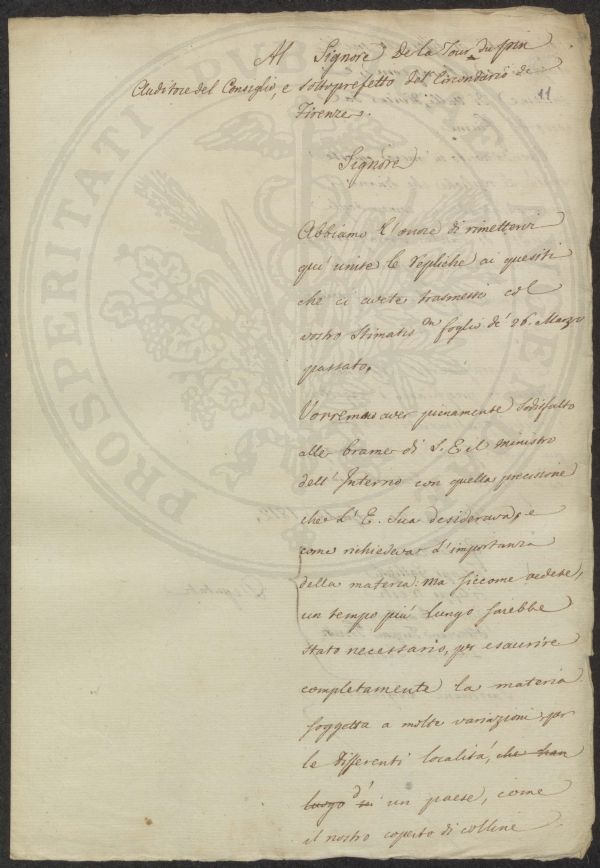 Al Signore De la Tour du pin
Auditore del Consiglio, e Sottoprefetto del Circondario di
Firenze.
11
Signore
Abbiamo l'onore di rimettervi
quì unite le repliche ai quesiti
che ci avete trasmessi col
vostro Stimatis.mo foglio de' 26. Marzo
passato,
Vorremmo aver pienamente sodisfatto
alle brame di S. E. il ministro
dell'Interno con quella precisione
che l'E. Sua desiderava, e
come richiedeva l'importanza
della materia: ma siccome vedete,
un tempo più lungo sarebbe
stato necessario, per esaurire
completamente la materia
soggetta a molte variazioni per
le differenti località, che han
luogo d' in un paese, come
il nostro coperto di colline
PROSPERITATI PUBLICAE